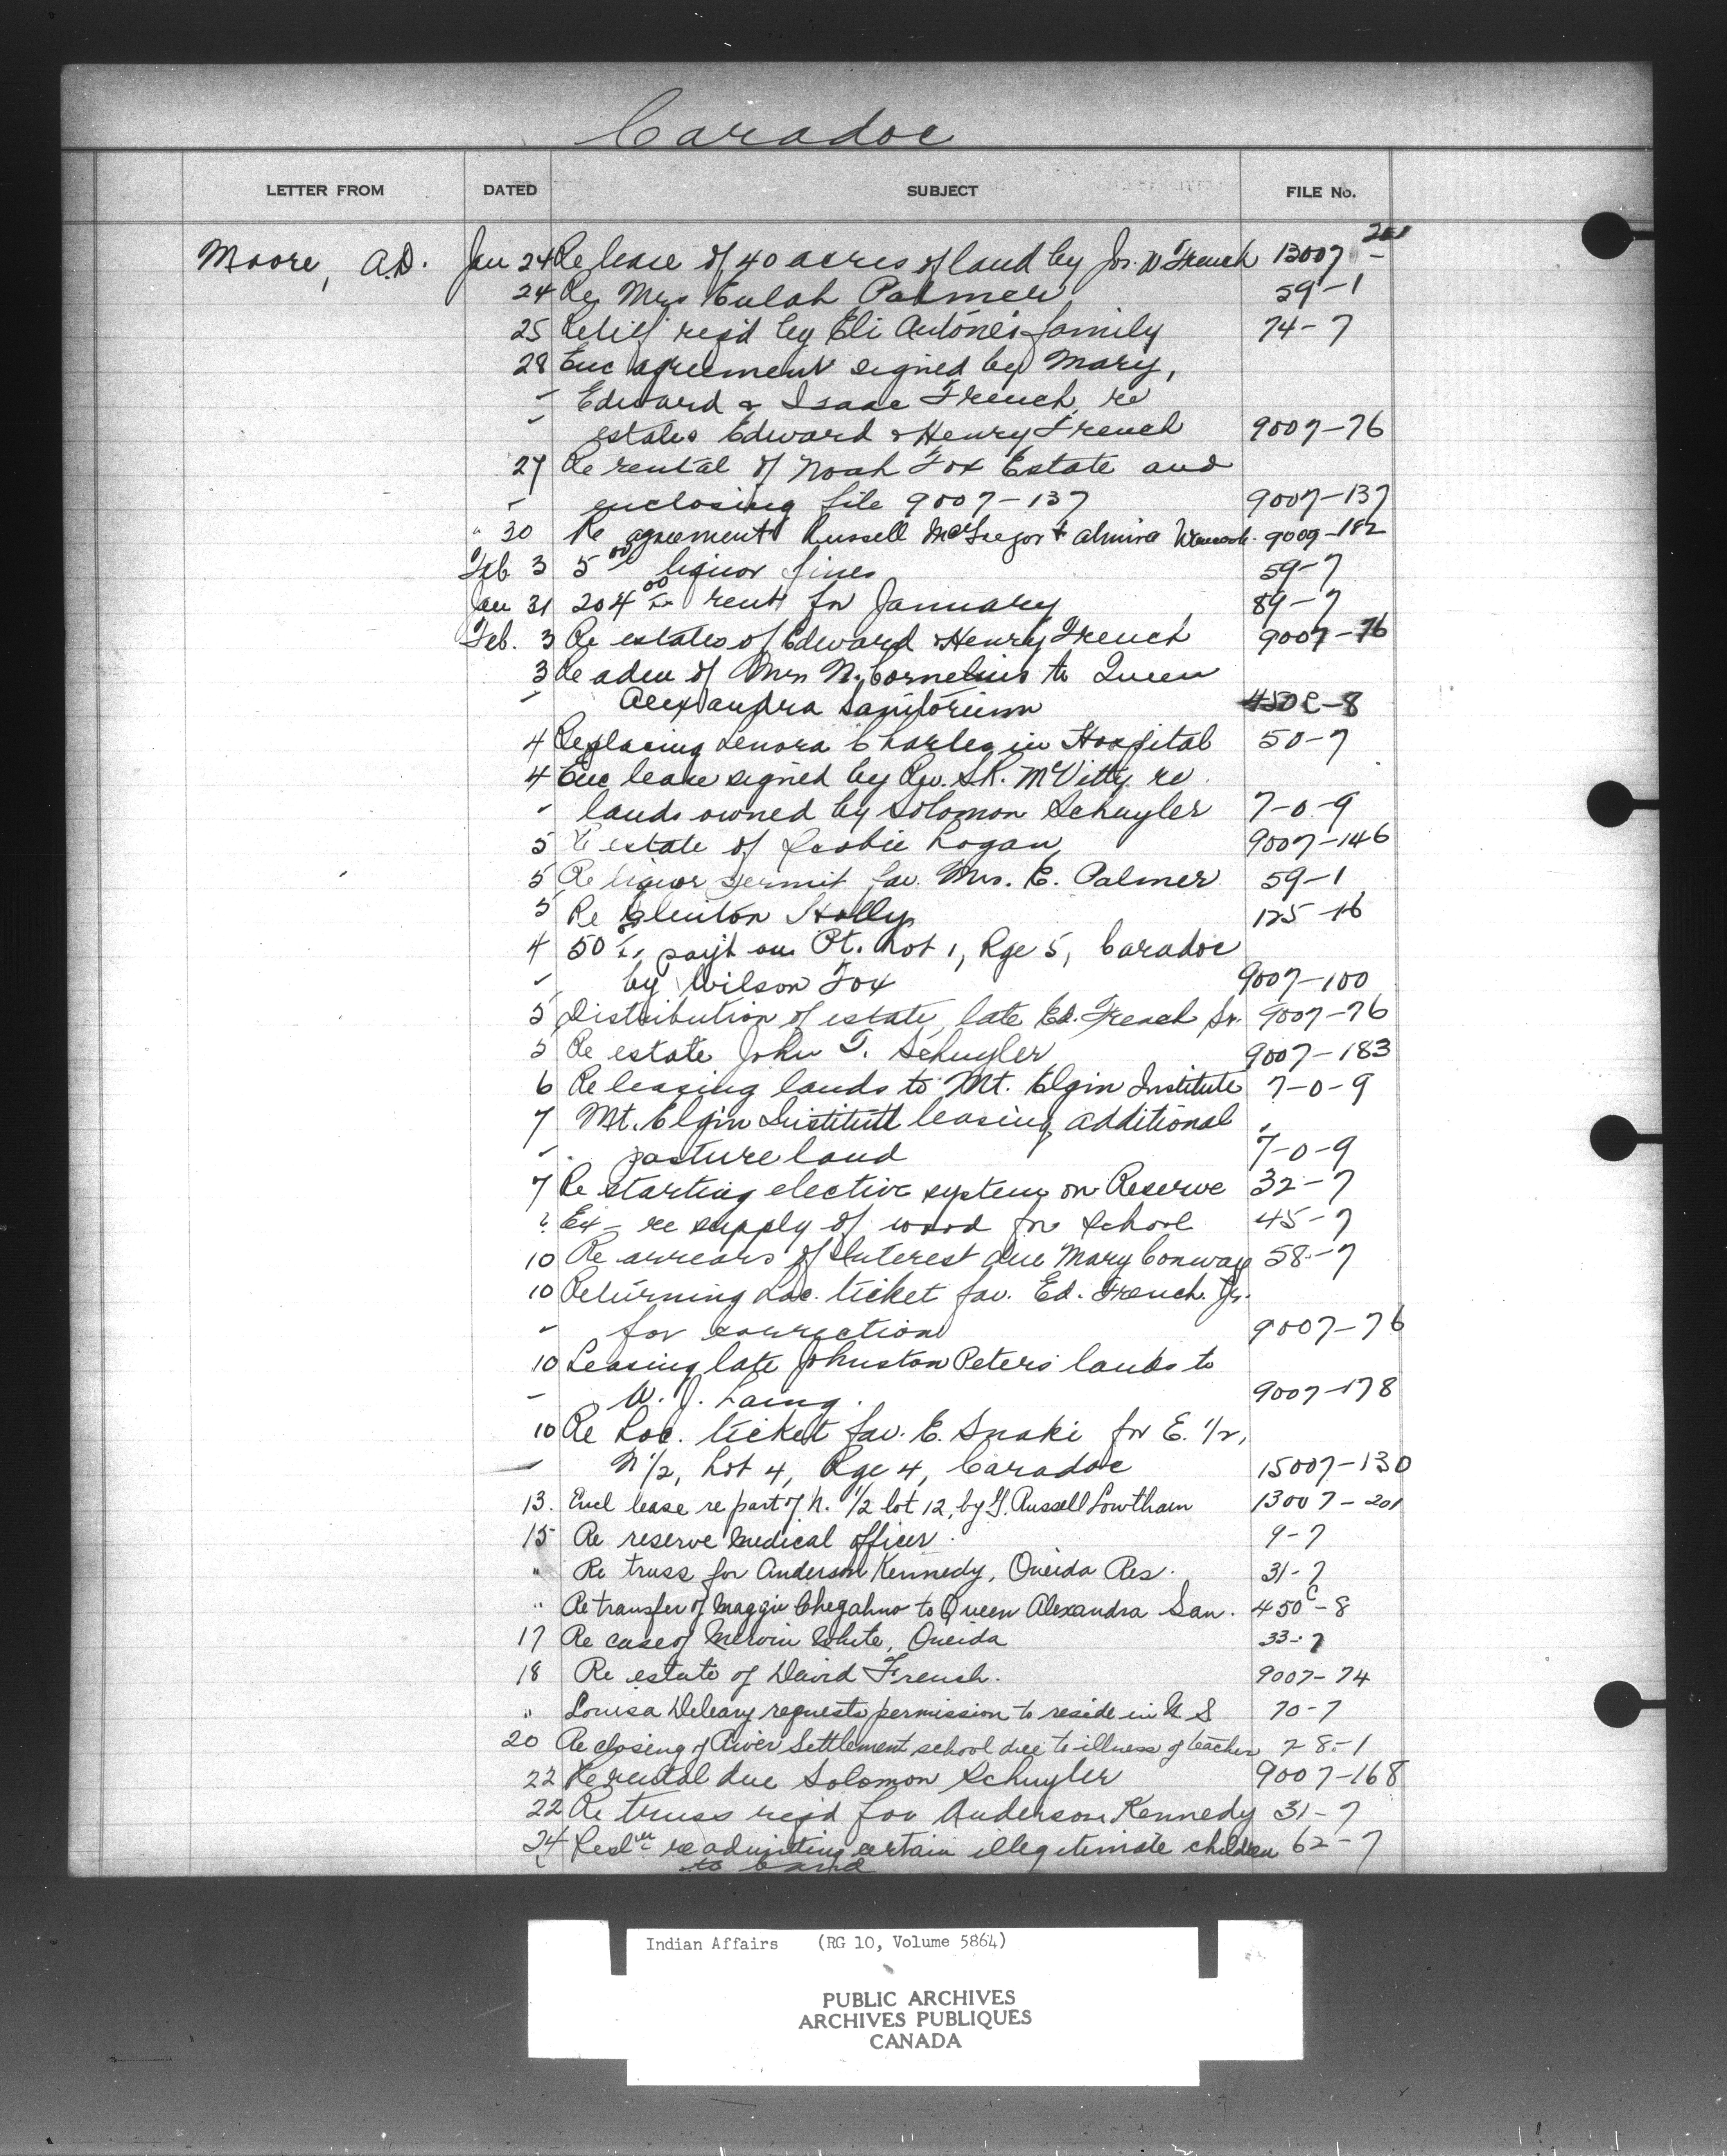 Caradoc
LETTER FROM DATED SUBJECT FILE No.
Moore, A.D. Jan 24 Re lease of 40 acres of land by Jos. W French 13007-201
24 Re Mrs Eulah Palmer 59-1
25 Relief req'd by Eli Antone's family 74-7
28 Enc agreement signed by Mary,
" Edward & Isaac French re
" estates Edward & Henry French 9007-76
27 Re rental of Noah Fox Estate and
" enclosing file 9007-137 9007-137
" 30 Re agreement Russell McGregor & Almira 9009-182
Feb 3 5.00 liquor fines 59-7
Jan 31 204.00 rent for January 89-7
Feb. 3 Re estates of Edward & Henry French 9007-76
3 Re adm of Mrs N. Cornelius to Queen
" Alexandra Sanitorium 450C-8
4 Replacing Lenora Charles in Hospital 50-7
4 Enc lease signed by Rev. S.R. McVitty re
" lands owned by Solomon Schuyler 7-0-9
5 Re estate of Scobie Logan 9007-146
5 Re liquor permit fav. Mrs. E. Palmer 59-1
5 Re Clinton Holly 125-16
4 50 pay't on Pt. Lot 1, Rge 5, Caradoc
" by Wilson Fox 9007-100
5 Distribution of estate, late Ed. French Sr. 9007-76
5 Re estate John T. Schuyler 9007-183
6 Re leasing lands to Mt. Elgin Institute 7-0-9
7 Mt. Elgin Institute leasing additional
" pasture land 7-0-9
7 Re starting elective system on Reserve 32-7
? Ex- re supply of wood for school 45-7
10 Re arrears of Interest due Mary Conway 58-7
10 Returning Loc. ticket fav. Ed. French. Jr.
" for correction 9007-76
10 Leasing late Johnston Peters lands to
" W. J. Laing. 9007-178
10 Re Loc. ticket fav. E. Snake for E. 1/2,
" N 1/2, Lot 4, Rge 4, Caradoc 15007-130
13. Encl lease re part of N. 1/2 lot 12, by G. Russell Lowtham 13007-201
15 Re reserve medical officer 9-7
" Re truss for Anderson Kennedy, Oneida Res. 31-7
" Re transfer of Maggie Chegahno to Queen Alexandra San. 450C-8
17 Re case of Mervin White, Oneida 33-7
18 Re estate of David French. 9007-74
" Louisa Deleary requests permission to reside in U S 70-7
20 Re closing of River Settlement school due to illness of teacher 28-1
22 Re rental due Solomon Schuyler 9007-168
22 Re truss req'd for Anderson Kennedy 31-7
24 Resl'n re admitting certain illegitimate children 62-7
to band
Indian Affairs (RG 10, Volume 5864)
PUBLIC ARCHIVES
ARCHIVES PUBLIQUES
CANADA